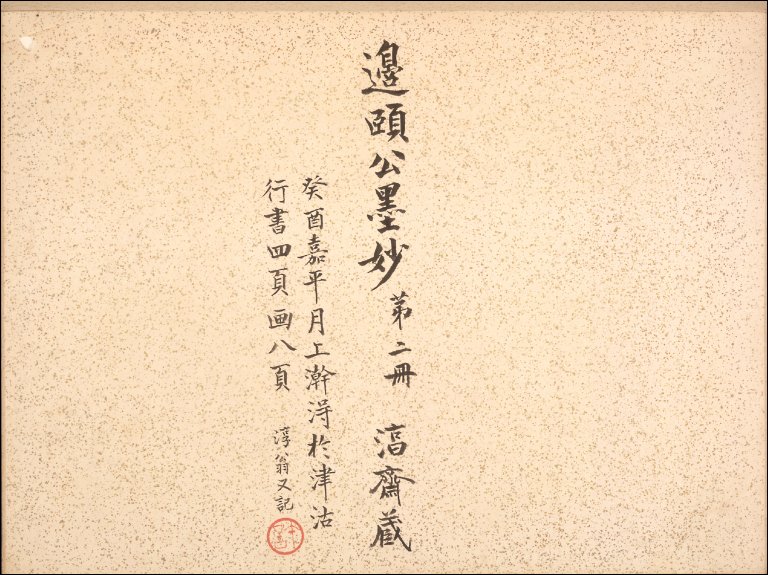 邊頤公墨妙 第二冊 滈齋蔵
癸酉嘉平月上澣淂於津沽
行書四頁画八頁
淳翁又記